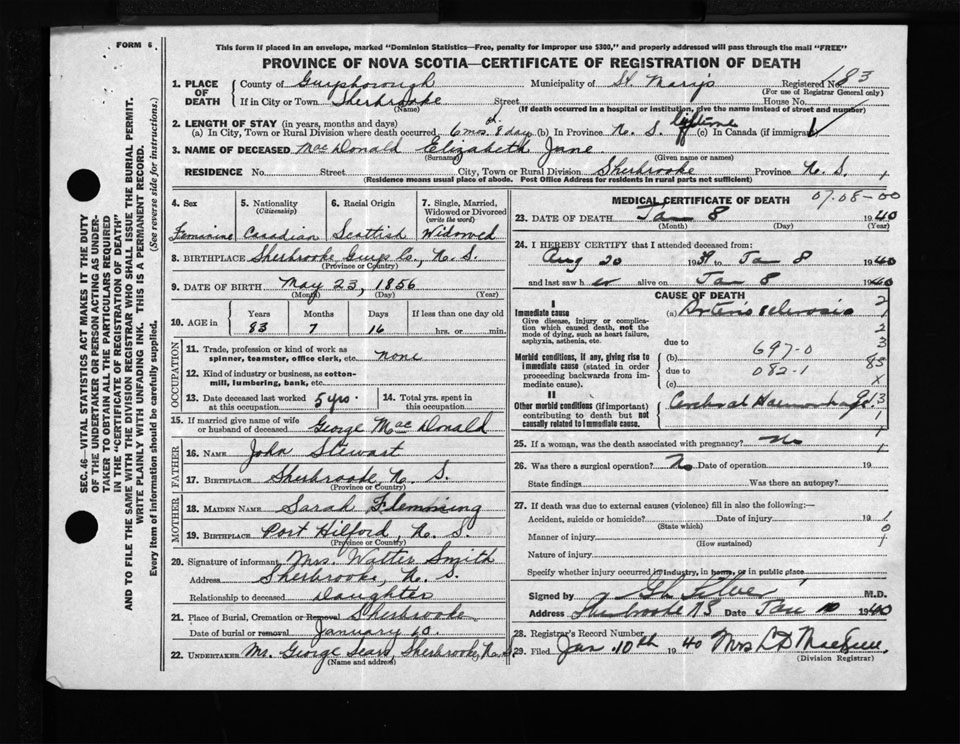 FORM 6.
This form if placed in an envelope, marked "Dominion Statistics—Free, penalty for improper use $300," and properly addressed will pass through the mail "FREE"
PROVINCE OF NOVA SCOTIA—CERTIFICATE OF REGISTRATION OF DEATH
SEC. 46—VITAL STATISTICS ACT MAKES IT THE DUTY
OF THE UNDERTAKER OR PERSON ACTING AS UNDER-
TAKER TO OBTAIN ALL THE PARTICULARS REQUIRED
IN THE "CERTIFICATE OF REGISTRATION OF DEATH"
AND TO FILE THE SAME WITH THE DIVISION REGISTRAR WHO SHALL ISSUE THE BURIAL PERMIT.
WRITE PLAINLY WITH UNFADING INK. THIS IS A PERMANENT RECORD.
Every item of information should be carefully supplied. (See reverse side for instructions.)
1. PLACE OF DEATH County of Guysborough Municipality of St. Marys Registered No. 183
(For use of Registrar General only)
If in City or Town Sherbrooke Street House No.
(Name) (If death occurred in a hospital or institution, give the name instead of street and number)
2. LENGTH OF STAY (in years, months and days)
(a) In City, Town or Rural Division where death occurred 6 mos. 8 days (b) In Province N. S. lifetime (c) In Canada (if immigrant)
3. NAME OF DECEASED MacDonald Elizabeth Jane
(Surname) (Given name or names)
RESIDENCE No. Street City, Town or Rural Division Sherbrooke Province N. S.
(Residence means usual place of abode. Post Office Address for residents in rural parts not sufficient)
4. Sex
Feminine
5. Nationality
(Citizenship)
Canadian
6. Racial Origin
Scottish
7. Single, Married,
Widowed or Divorced
(write the word)
Widowed
8. BIRTHPLACE Sherbrooke, Guys Co., N. S.
(Province or Country)
9. DATE OF BIRTH May 23, 1856
(Month) (Day) (Year)
10. AGE in Years Months Days If less than one day old
83 7 16 hrs. or min.
OCCUPATION
11. Trade, profession or kind of work as
spinner, teamster, office clerk, etc. none
12. Kind of industry or business, as cotton-
mill, lumbering, bank, etc.
13. Date deceased last worked
at this occupation 5 yrs.
14. Total yrs. spent in
this occupation
15. If married give name of wife
or husband of deceased George MacDonald
FATHER
16. NAME John Stewart
17. BIRTHPLACE Sherbrooke N. S.
(Province or Country)
MOTHER
18. MAIDEN NAME Sarah Flemming
19. BIRTHPLACE Port Hilford, N. S.
(Province or Country)
20. Signature of informant Mrs. Walter Smith
Address Sherbrooke, N. S.
Relationship to deceased Daughter
21. Place of Burial, Cremation or Removal Sherbrooke
Date of burial or removal January 10.
22. UNDERTAKER Mr. George Sears, Sherbrooke, N. S.
(Name and address)
MEDICAL CERTIFICATE OF DEATH 07-08-00
23. DATE OF DEATH Jan 8 1940
(Month) (Day) (Year)
24. I HEREBY CERTIFY that I attended deceased from:
Aug 20 1939 to Jan 8 1940
and last saw her alive on Jan 8 1940
CAUSE OF DEATH
I
Immediate cause
Give disease, injury or complica-
tion which caused death, not the
mode of dying, such as heart failure,
asphyxia, asthenia, etc.
(a) Arterio sclerosis
due to
Morbid conditions, if any, giving rise to
immediate cause (stated in order
proceeding backwards from im-
mediate cause).
(b) 697-0
due to 082-1
(c)
II
Other morbid conditions (if important)
contributing to death but not
causally related to immediate cause.
Cerebral Haemorrhage
25. If a woman, was the death associated with pregnancy? No
26. Was there a surgical operation? No Date of operation 19
State findings Was there an autopsy?
27. If death was due to external causes (violence) fill in also the following:
Accident, suicide or homicide? Date of injury 19
(State which)
Manner of injury
(How sustained)
Nature of injury
Specify whether injury occurred in industry, in home, or in public place
Signed by M.D.
Address Sherbrooke NS Date Jan 10 1940
28. Registrar's Record Number
29. Filed Jan. 10th 1940 Mrs
(Division Registrar)